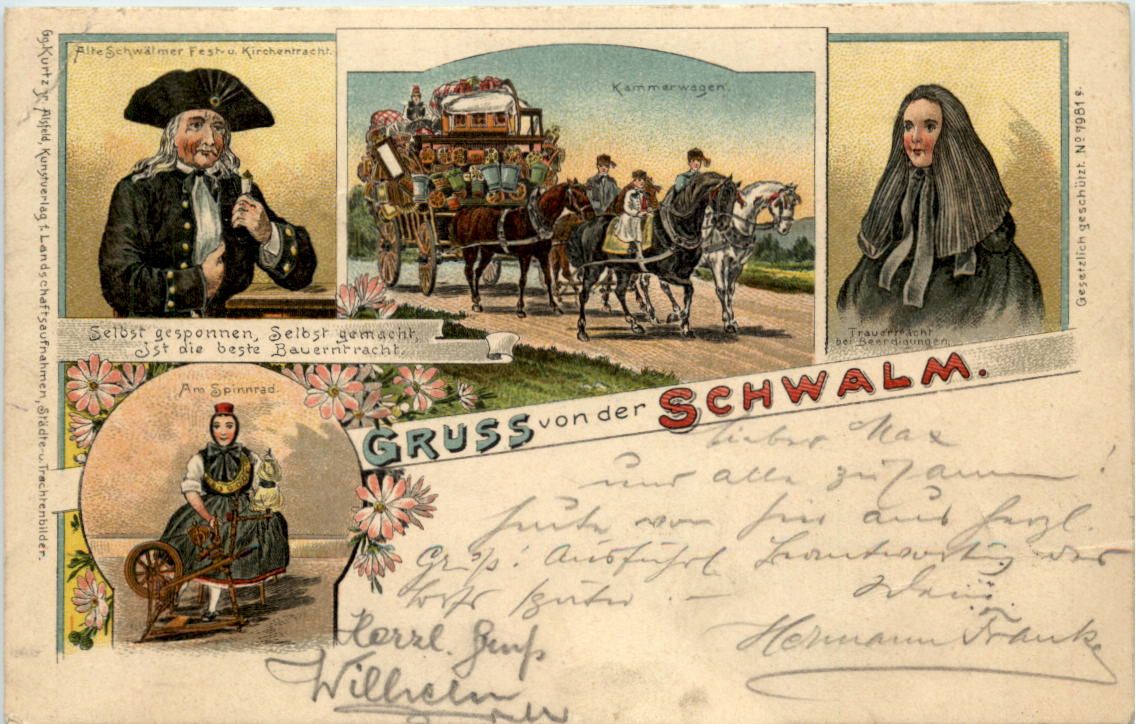 Gg. Kurtz jr. Alsfeld, Kunstverlag f. Landschaftsaufnahmen, Städte- u. Trachtenbilder.
Alte Schwälmer Fest- u. Kirchentracht.
Kammerwagen.
Trauertracht
bei Beerdigungen.
Gesetzlich geschützt. No 7981 e.
Selbst gesponnen, Selbst gemacht,
Ist die beste Bauerntracht.
Am Spinnrad.
GRUSS von der SCHWALM.
Lieber Max
und alle zusamm !
heute von hier aus herzl.
Gruß! Ausführl Beantwortung der
später. –
Dein
Hermann Franke
Herzl. Gruß
Wilhelm